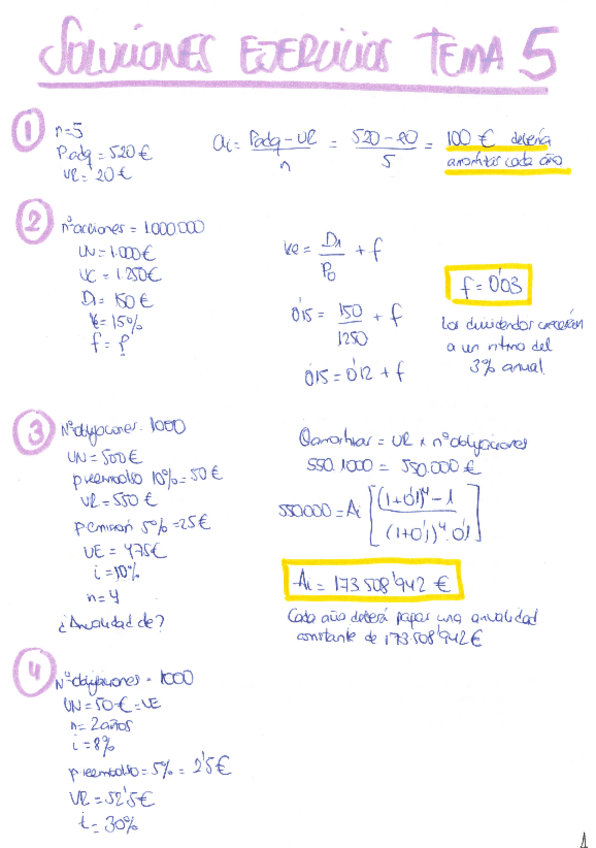 SOLUCIONES EJERCICIOS TEMA 5
1
n=5
Padq = 520 €
VR = 20 €
ai = Padq - VR / n = 520 - 20 / 5 = 100 € debería
amortizar cada año
2
nº acciones = 1.000.000
VN = 1.000 €
VC = 1.250 €
D1 = 150 €
Ke = 15%
f = ?
Ke = D1 / P0 + f
0'15 = 150 / 1250 + f
0'15 = 0'12 + f
f = 0'03
Los dividendos crecerán
a un ritmo del
3% anual
3
Nº obligaciones = 1000
VN = 500 €
p reembolso 10% = 50 €
VR = 550 €
p emisión 5% = 25 €
VE = 475 €
i = 10%
n = 4
¿Anualidad de?
Qamortizar = VR x nº obligaciones
550 . 1000 = 550.000 €
550000 = Ai [ (1+0'1)^4 - 1 / (1+0'1)^4 . 0'1 ]
Ai = 173508'942 €
Cada año deberá pagar una anualidad
constante de 173508'942 €
4
Nº obligaciones = 1000
VN = 50 € = VE
n = 2 años
i = 8%
p reembolso = 5% = 2'5 €
VR = 52'5 €
t = 30%
1